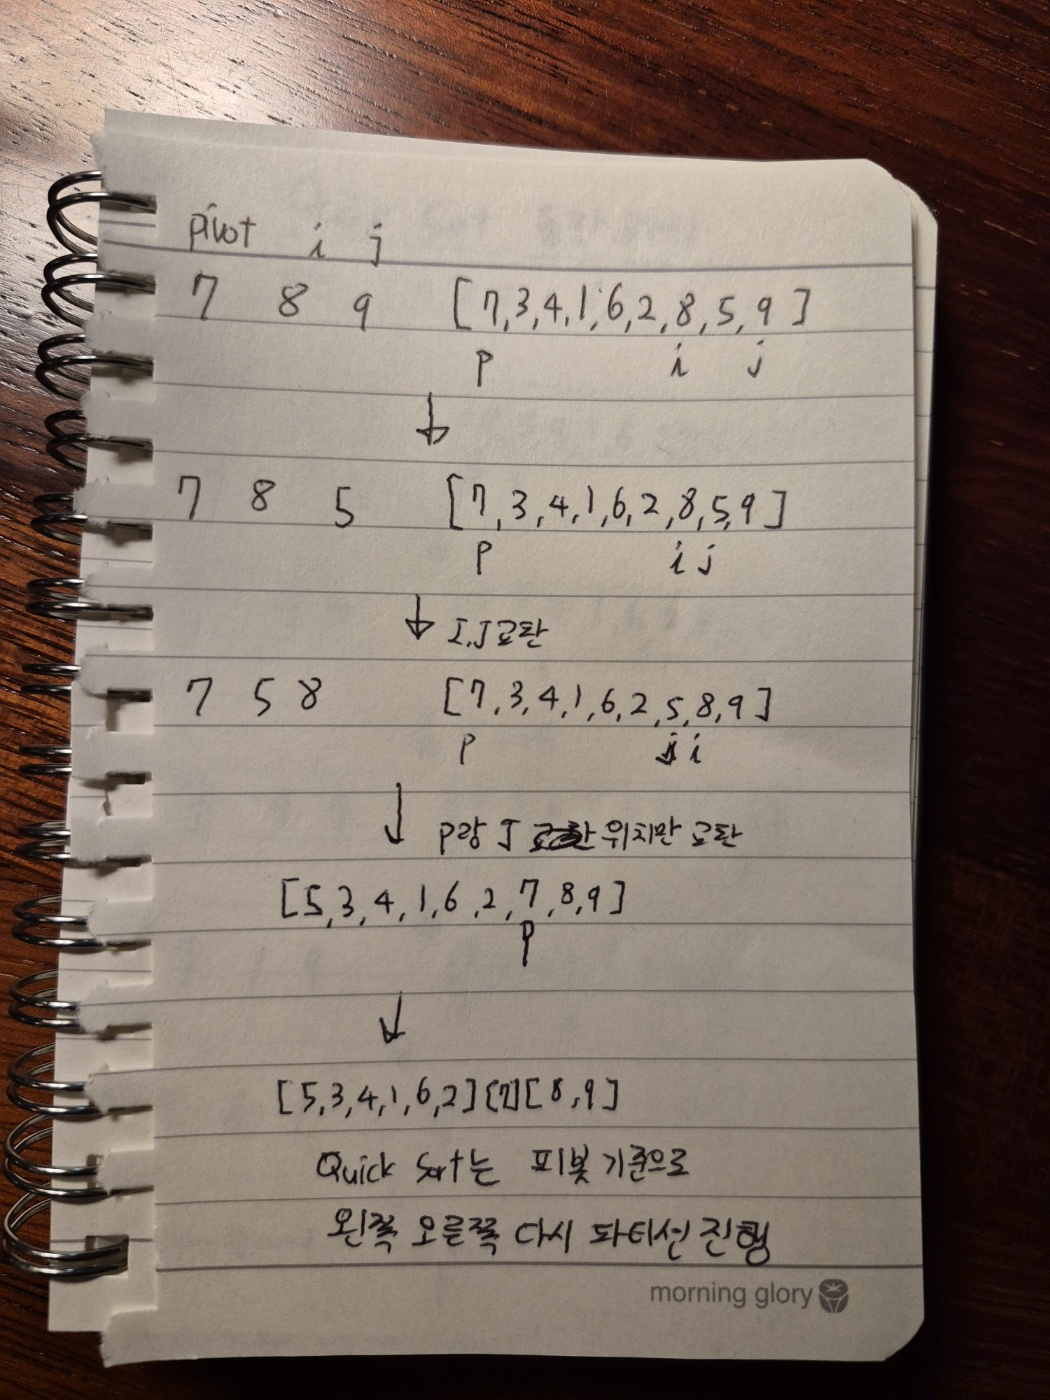 pivot i j
7 8 9 [7,3,4,1,6,2,8,5,9]
p i j
7 8 5 [7,3,4,1,6,2,8,5,9]
p i j
I,J 교환
7 5 8 [7,3,4,1,6,2,5,8,9]
p j i
P랑 J 위치만 교환
[5,3,4,1,6,2,7,8,9]
P
[5,3,4,1,6,2][7][8,9]
Quick Sort는 피봇 기준으로
왼쪽 오른쪽 다시 파티션 진행
morning glory